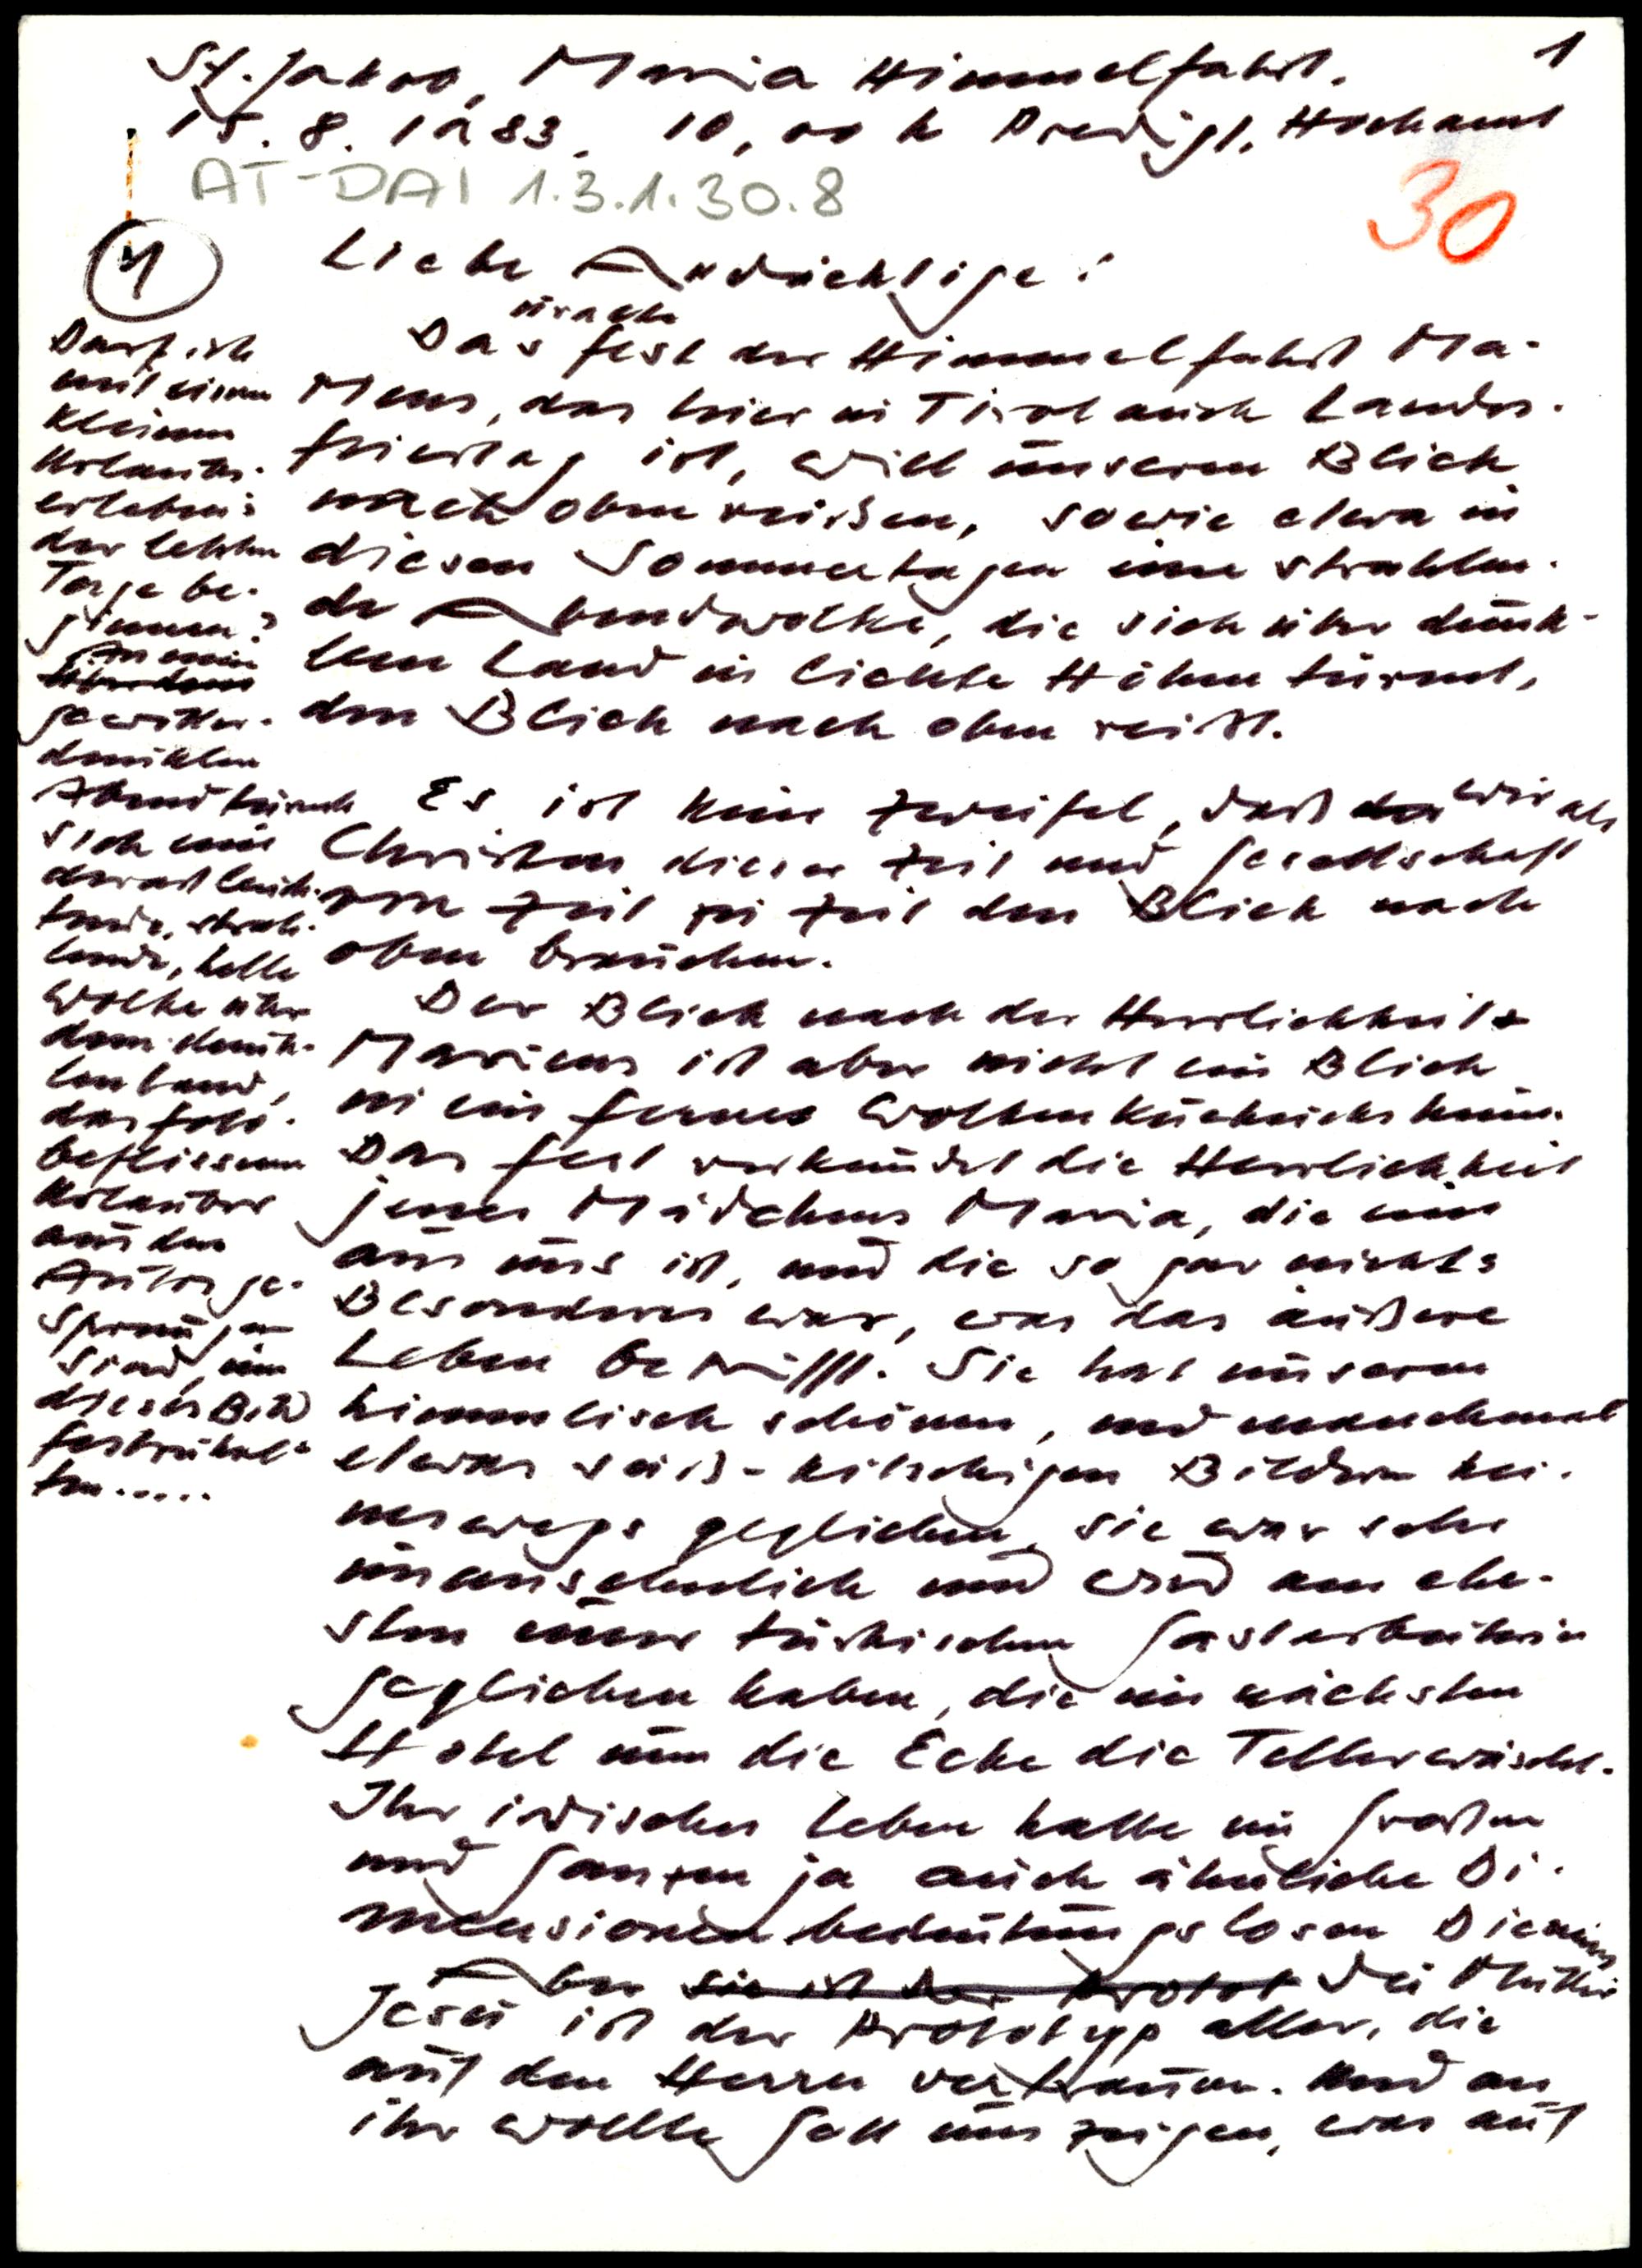 1
St. Jakob, Maria Himmelfahrt.
15. 8. 1983, 10,00 h Predigt, Hochamt
AT-DAI 1.3.1.30.8
30
1
Liebe Andächtige!
Das Fest der Himmelfahrt Ma-
riens, das hier in Tirol auch Landes-
feiertag ist, will unseren Blick
nach oben reißen, sowie etwa in
diesen Sommertagen eine strahlen-
de Abendwolke, die sich über dunk-
lem Land in lichte Höhen türmt,
den Blick nach oben reißt.
Es ist kein Zweifel, daß wir als
Christen dieser Zeit und Gesellschaft
von Zeit zu Zeit den Blick nach
oben brauchen.
Der Blick nach der Herrlichkeit
Mariens ist aber nicht ein Blick
in ein fernes Wolkenkuckucksheim.
Das Fest verkündet die Herrlichkeit
jenes Mädchens Maria, die eine
aus uns ist, und die so gar nichts
Besonderes war, was das äußere
Leben betrifft. Sie hat unseren
himmlisch schönen, und manchmal
etwas süß-kitschigen Bildern kei-
neswegs geglichen, sie war sehr
unansehnlich und wird am ehe-
sten einer türkischen Gastarbeiterin
geglichen haben, die im nächsten
Hotel um die Ecke die Teller wäscht.
Ihr irdisches Leben hatte im Großen
und Ganzen ja auch ähnliche Di-
mensionen bedeutungslosen Dienens
Aber sie ist der Protot die Mutter
Jesu ist der Prototyp aller, die
auf den Herrn vertrauen. Und an
ihr wollte Gott uns zeigen, was auf
Darf ich
mit einem
kleinen
Urlaubs-
erlebnis
der letzten
Tage be-
ginnen?
An einem
gewitter-
dunklen
Abend türmte
sich eine
derart leuch-
tende, strah-
lende, helle
Wolke über
dem dunk-
len Land,
das foto-
beflissene
Urlauber
aus den
Autos ge-
sprungen
sind, um
dieses Bild
festzuhal-
ten.....